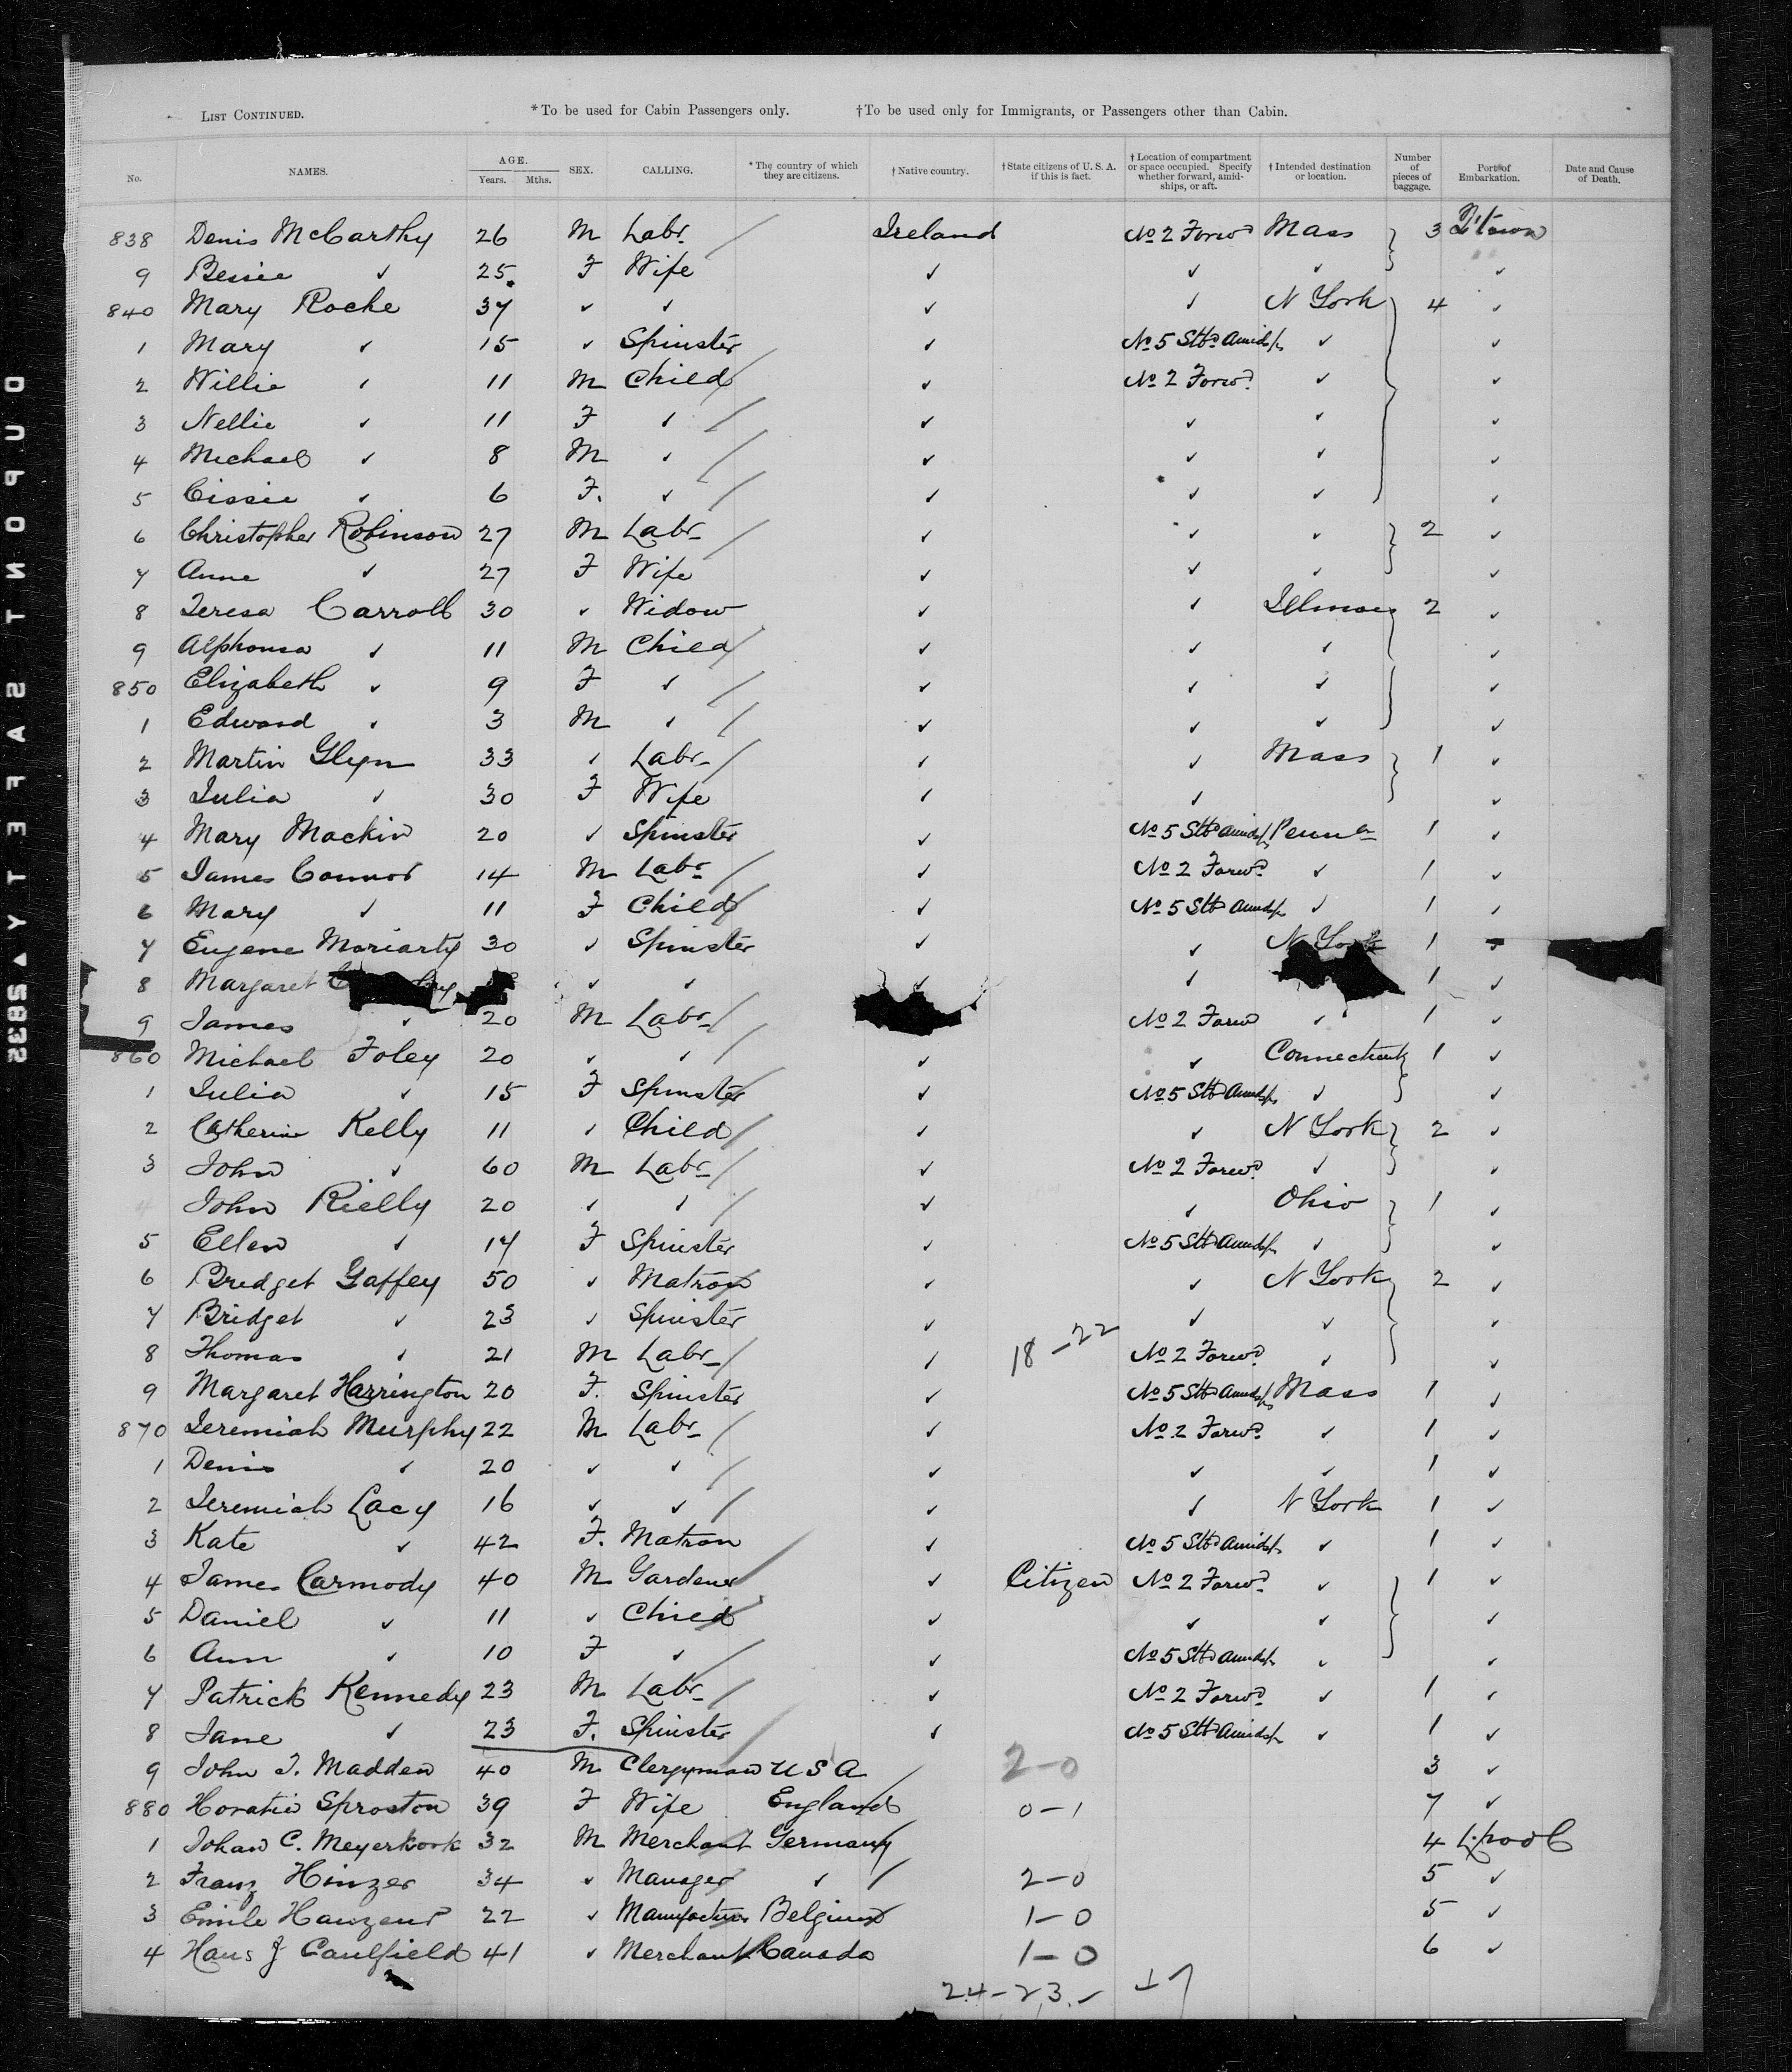 LIST CONTINUED. *To be used for Cabin Passengers only. †To be used only for Immigrants, or Passengers other than Cabin.
No. NAMES. AGE. Years. Mths. SEX. CALLING. *The country of which they are citizens. †Native country. †State citizens of U. S. A. if this is fact. †Location of compartment or space occupied. Specify whether forward, amidships, or aft. †Intended destination or location. Number of pieces of baggage. Port of Embarkation. Date and Cause of Death.
838 Denis McCarthy 26 M Labr Ireland No 2 Forwd Mass 3 Qtown
9 Bessie ✓ 25 F Wife ✓ ✓ ✓ ✓
840 Mary Roche 37 ✓ ✓ ✓ ✓ N York 4 ✓
1 Mary ✓ 15 ✓ Spinster ✓ No 5 Stbd Amidsps ✓ ✓
2 Willie ✓ 11 M Child ✓ No 2 Forwd ✓ ✓
3 Nellie ✓ 11 F ✓ ✓ ✓ ✓ ✓
4 Michael ✓ 8 M ✓ ✓ ✓ ✓ ✓
5 Cissie ✓ 6 F. ✓ ✓ ✓ ✓ ✓
6 Christopher Robinson 27 M Labr ✓ ✓ ✓ 2 ✓
7 Anne ✓ 27 F Wife ✓ ✓ ✓ ✓
8 Teresa Carroll 30 ✓ Widow ✓ ✓ 2 ✓
9 Alphonsa ✓ 11 M Child ✓ ✓ ✓ ✓
850 Elizabeth ✓ 9 F ✓ ✓ ✓ ✓ ✓
1 Edward ✓ 3 M ✓ ✓ ✓ ✓ ✓
2 Martin Glyn 33 ✓ Labr ✓ ✓ Mass 1 ✓
3 Julia ✓ 30 F Wife ✓ ✓ ✓
4 Mary Mackin 20 ✓ Spinster ✓ No 5 Stbd Amidsps Penna 1 ✓
5 James Connor 14 M Labr ✓ No 2 Forwd ✓ 1 ✓
6 Mary ✓ 11 F Child ✓ No 5 Stbd Amidsps ✓ 1 ✓
7 Eugene Moriarty 30 ✓ Spinster ✓ ✓ N York 1 ✓
8 Margaret ✓ ✓ ✓ ✓ 1 ✓
9 James ✓ 20 M Labr No 2 Forwd ✓ 1 ✓
860 Michael Foley 20 ✓ ✓ ✓ ✓ Connecticut 1 ✓
1 Julia ✓ 15 F Spinster ✓ No 5 Stbd Amidsps ✓ ✓
2 Catherine Kelly 11 ✓ Child ✓ ✓ N York 2 ✓
3 John ✓ 60 M Labr ✓ No 2 Forwd ✓ ✓
4 John Rielly 20 ✓ ✓ ✓ ✓ Ohio 1 ✓
5 Ellen ✓ 17 F Spinster ✓ No 5 Stbd Amidsps ✓ ✓
6 Bridget Gaffey 50 ✓ Matron ✓ ✓ N York 2 ✓
7 Bridget ✓ 23 ✓ Spinster ✓ ✓ ✓ ✓
8 Thomas ✓ 21 M Labr ✓ 18-22 No 2 Forwd ✓ ✓
9 Margaret Harrington 20 F. Spinster ✓ No 5 Stbd Amidsps Mass 1 ✓
870 Jeremiah Murphy 22 M Labr ✓ No 2 Forwd ✓ 1 ✓
1 Denis ✓ 20 ✓ ✓ ✓ ✓ ✓ 1 ✓
2 Jeremiah Lacy 16 ✓ ✓ ✓ ✓ N York 1 ✓
3 Kate ✓ 42 F. Matron ✓ No 5 Stbd Amidsps ✓ 1 ✓
4 James Carmody 40 M Gardener ✓ Citizen No 2 Forwd ✓ 1 ✓
5 Daniel ✓ 11 ✓ Child ✓ ✓ ✓ ✓
6 Ann ✓ 10 F ✓ ✓ No 5 Stbd Amidsps ✓ ✓
7 Patrick Kennedy 23 M Labr ✓ No 2 Forwd ✓ 1 ✓
8 Jane ✓ 23 F. Spinster ✓ No 5 Stbd Amidsps ✓ 1 ✓
9 John T. Madden 40 M Clergyman U S A 2-0 3 ✓
880 Horatio Sproston 39 F Wife England 0-1 7 ✓
1 Johan C. Meyerkook 32 M Merchant Germany 4 L'pool
2 Franz Hinzer 34 ✓ Manager ✓ 2-0 5 ✓
3 Emile 22 ✓ Manufacturer Belgium 1-0 5 ✓
4 Hans J Caulfield 41 ✓ Merchant Canada 1-0 6 ✓
24-23